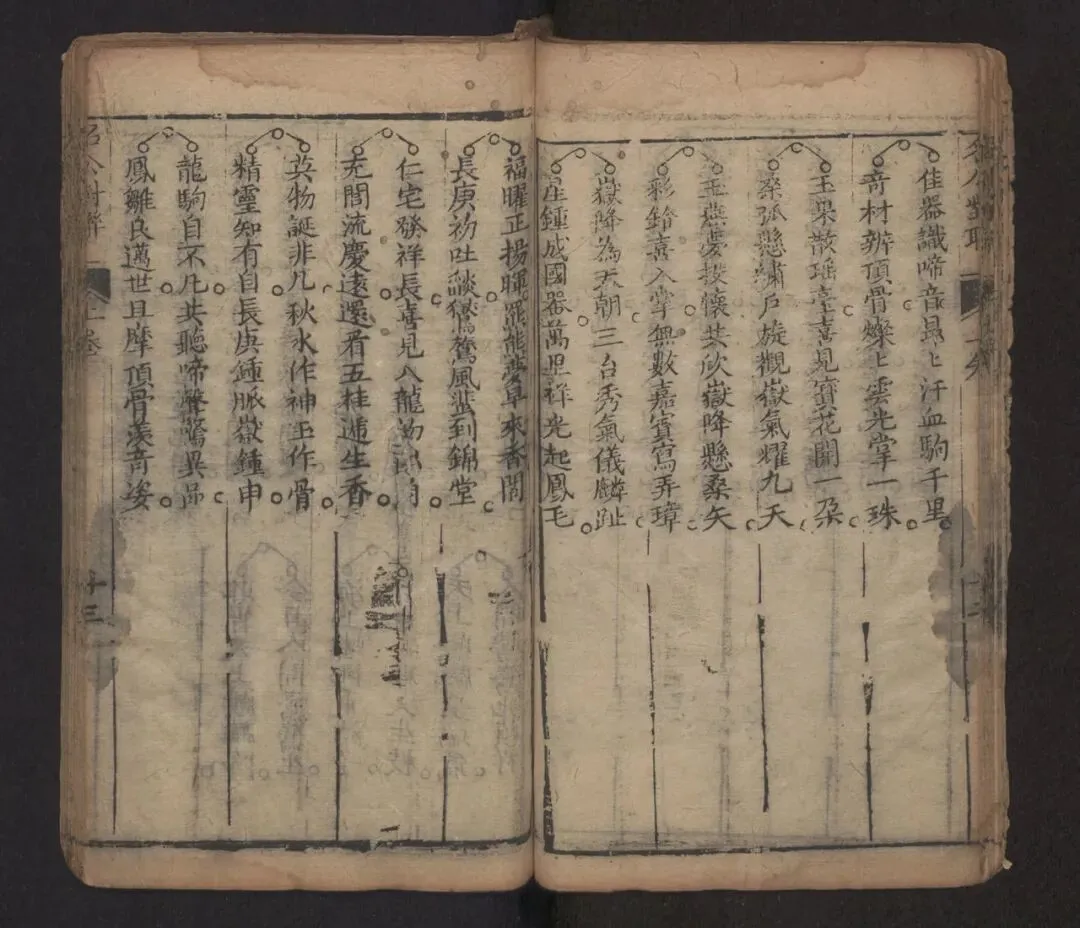 佳器識啼音昂〻汗血駒千里
奇材辨頂骨燦〻雲光掌一珠
玉果散瑶臺喜見寳花開一朶
桑弧懸繡戶旋觀嶽氣耀九天
玉燕夢投懷共欣嶽降懸桑矢
彩鈴喜入掌無數嘉賓寫弄璋
嶽降為天朝三台秀氣儀麟趾
鍾成國器萬里祥光起鳳毛
福曜正揚暉羆熊夢早來香閣
長庚初吐燄鸑鷟風蜚到錦堂
仁宅發祥長喜見八龍
充閭流慶遠還看五桂遞生香
英物誕非凡秋水作神玉作骨
精靈知有自長庚鍾脈嶽鍾申
龍駒自不凡共聽啼聲驚異品
鳳雛良邁世且摩頂骨羨奇姿
名公對聯
上卷
十三